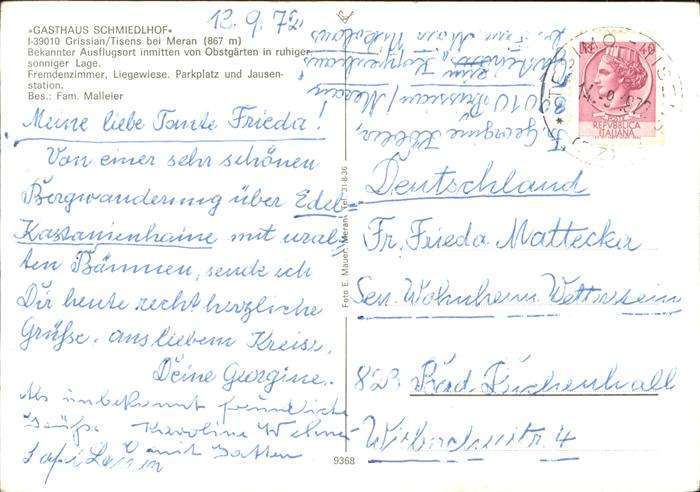 13.9.72
»GASTHAUS SCHMIEDLHOF«
I-39010 Grissian/Tisens bei Meran (867 m)
Bekannter Ausflugsort inmitten von Obstgärten in ruhiger,
sonniger Lage.
Fremdenzimmer, Liegewiese. Parkplatz und Jausen-
station.
Bes.: Fam. Malleier
Meine liebe Tante Frieda!
Von einer sehr schönen
Bergwanderung über Edel-
Kastanienhaine mit ural-
ten Bäumen, sende ich
Dir heute recht herzliche
Grüße. aus liebem Kreise,
Deine Georgine.
Als unbekannt freundliche
Grüße Karoline
mit Gatten
Foto E. Mauer, Meran, Tel. 31-8-36
9368
F. Georgine
39010 Prissian/Meran
POSTE
REPVBBLICA
ITALIANA
Deutschland
Fr. Frieda Mattecker
Sen. Wohnheim Wetterstein
823 Bad Reichenhall